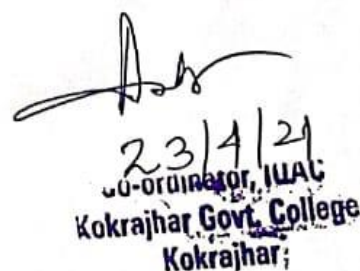 23/4/21
Co-ordinator, IQAC
Kokrajhar Govt. College
Kokrajhar;